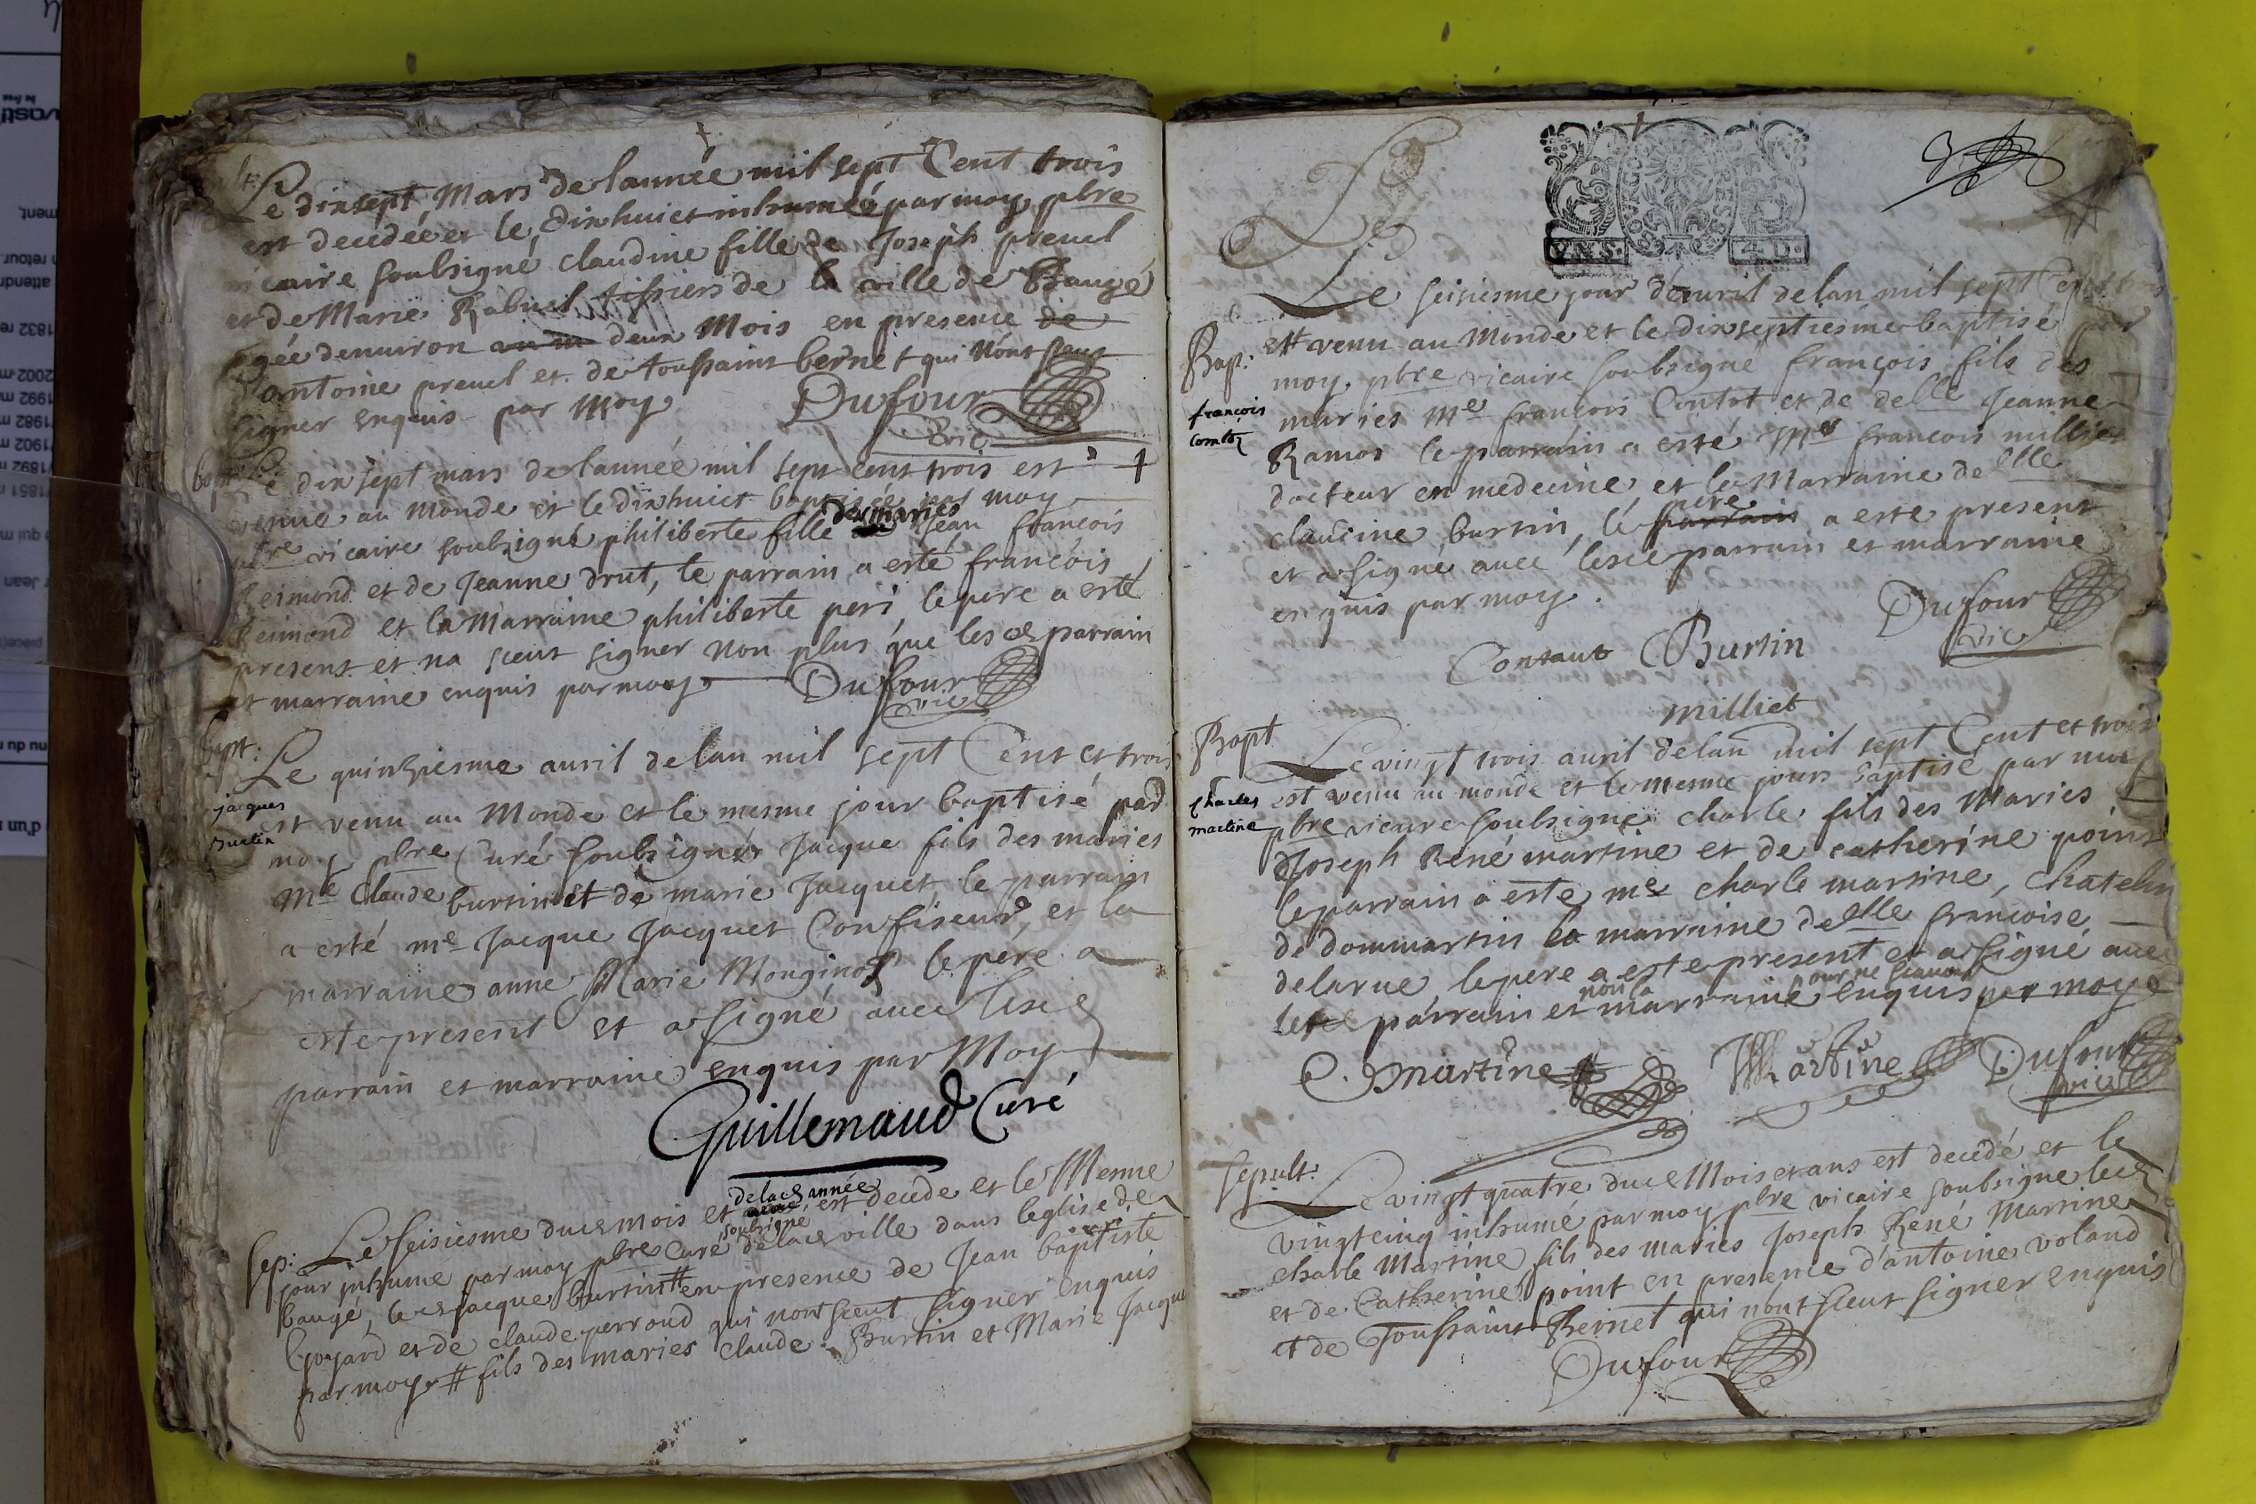 Le dixsept Mars de lannée mil sept Cent trois
est decedée et le dixhuict inhumée par moy pbre
vicaire soubsigné claudine fille de Joseph preuel
et de Marie Rabuel tissiers de la ville de Baugé
agée denuiron deux Mois en presence de
antoine preuel et de toussaint bernet qui nont sceut
signer enquis par moy Dufour
vic
bapt:
Le dix sept mars de lannée mil sept cent trois est
venue au monde et le dixhuict baptisée par moy
pbre vicaire soubsigné philiberte fille des maries Jean françois
Reimond et de Jeanne drut, le parrain a esté françois
Reimond et la Marraine philiberte peri le pere a esté
present et na sceut signer non plus que lesd parrain
et marraine enquis par moy Dufour
vic
bapt:
Le quinziesme auril de lan mil sept Cent et trois
jacques
burtin
est venu au Monde et le mesme jour baptisé par
moy pbre Curé soubsigné Jacque fils des maries
Me Claude burtin et de marie Jacquet le parrain
a esté me Jacque Jacquet Confiseur, et la
marraine anne Marie Monginot le pere a
este present et a signé auec lesd
parrain et marraine enquis par Moy
Guillemaud Curé
sep:
Le seisiesme dud mois et delad année est decede et le Mesme
jour inhume par moy pbre Curé soubsigné delad ville dans leglise de
baugé, led Jacque burtin # en presence de Jean baptiste
Goyard et de claude perroud qui nont sceut signer enquis
par moy # fils des maries Claude Burtin et Marie Jacque
GEN
BOURG BRESSE
VN.S. 4.D.
Le seisiesme jour dauril de lan mil sept Cent trois
Bap:
est venu au Monde et le dixseptiesme baptisé par
moy pbre vicaire soubsigné françois fils des
françois
maries Me françois Contot et de delle Jeanne
Ramos le parrain a esté Me françois milliet
docteur en medecine et la Marraine delle
claudine burtin, le pere parrain a este present
et a signé auec lesd parrain et marraine
enquis par moy. Dufour
vic
Burtin
milliet
Bapt
Le vingt trois auril de lan mil sept Cent et trois
Charles
martine
est venu au monde et le mesme jour baptisé par moy
pbre vicaire soubsigné charle fils des Maries
Joseph René martine et de catherine point
le parrain a este me charle martine, chatelin
de dommartin la marraine delle francoise
delarue le pere a este present et a signé auec
lesd parrain et non la marraine pour ne scauoir enquis par moy
C. martine Martine Dufour
vic
sepult:
Le vingt quatre dud Mois et ans est decedé et le
vingtcinq inhumé par moy pbre vicaire soubsigne led
charle Martine fils des maries Joseph René Martine
et de Catherine point en presence dantoine voland
et de Toussaint Bernet qui nont sceut signer enquis
Dufour